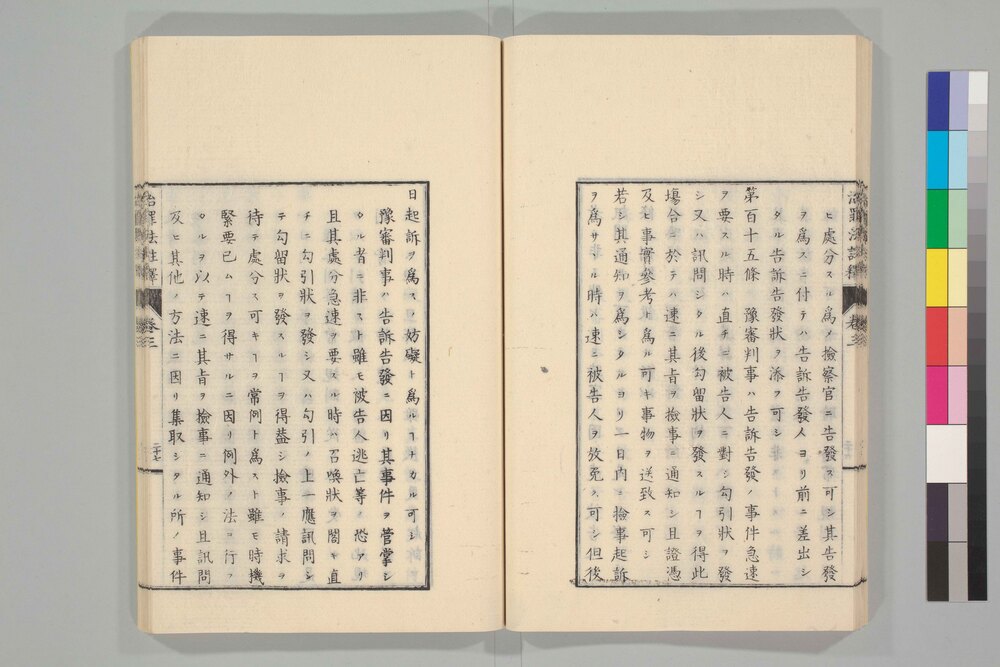 ヒ處分スル爲メ檢察官ニ告發ス可シ其告發
ヲ爲スニ付テハ告訴告發人ヨリ前ニ差出シ
タル告訴告發狀ヲ添フ可シ
第百十五條 豫審判事ハ告訴告發ノ事件急速
ヲ要スル時ハ直チニ被告人ニ對シ勾引狀ヲ發
シ又ハ訊問シタル後勾留狀ヲ發スルヿヲ得此
塲合ニ於テハ速ニ其旨ヲ檢事ニ通知シ且證憑
及ヒ事實參考ト爲ル可キ事物ヲ送致ス可シ
若シ其通知ヲ爲シタルヨリ一日内ニ檢事起訴
ヲ爲サヽル時ハ速ニ被告人ヲ放免ス可シ但後
治罪法註釋 卷三
日起訴ヲ爲スノ妨礙ト爲ルヿナカル可シ
豫審判事ハ告訴告發ニ因リ其事件ヲ管掌シ
タル者ニ非スト雖モ被告人逃亡等ノ恐アリ
且其處分急速ヲ要スル時ハ召喚狀ヲ閣キ直
チニ勾引狀ヲ發シ又ハ勾引ノ上一應訊問シ
テ勾留狀ヲ發スルヿヲ得蓋シ檢事ノ請求ヲ
待テ處分ス可キヿヲ常例ト爲スト雖モ時機
緊要已ムヿヲ得サルニ因リ例外ノ法ヲ行フ
タルヲ以テ速ニ其旨ヲ檢事ニ通知シ且訊問
及ヒ其他ノ方法ニ因リ集取シタル所ノ事件
治罪法註釋 卷三